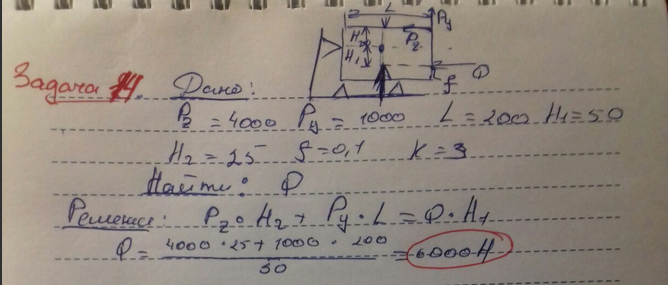 L Py
H Pz
H₁
Q
f
Задача 14. Дано:
Pz = 4000 Py = 1000 L = 200 H₁ = 50
H₂ = 25 f = 0,1 K = 3
Найти: Q
Решение: Pz · H₂ + Py · L = Q · H₁
Q = 4000 · 25 + 1000 · 200 / 50 = 6000 Н